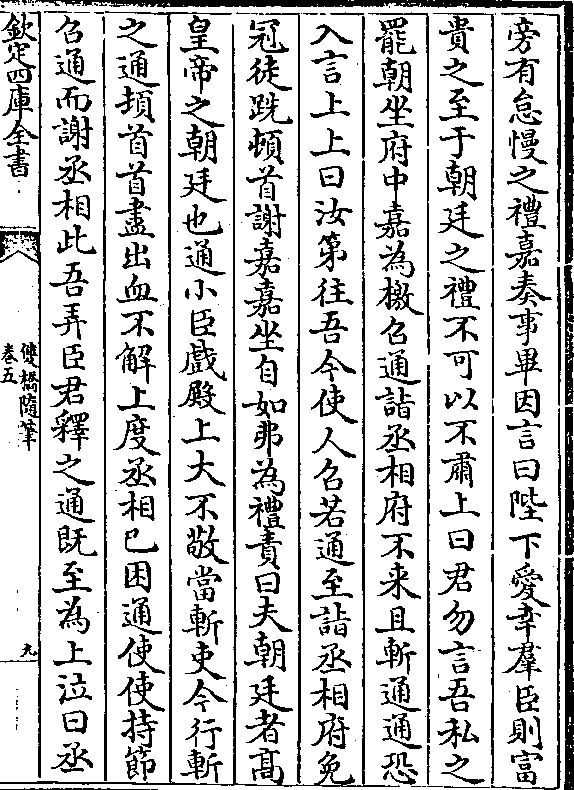 旁有怠慢之禮嘉奏事畢因言曰陛下愛幸羣臣則富
貴之至于朝廷之禮不可以不肅上曰君勿言吾私之
罷朝坐府中嘉為檄召通詣丞相府不来且斬通通恐
入言上上曰汝第往吾今使人召若通至詣丞相府免
冠徒跣頓首謝嘉嘉坐自如弗為禮責曰夫朝廷者高
皇帝之朝廷也通小臣戲殿上大不敬當斬吏今行斬
之通頓首首盡出血不解上度丞相已困通使使持節
召通而謝丞相此吾弄臣君釋之通既至為上泣曰丞
欽定四庫全書
雙橋隨筆
卷五
九